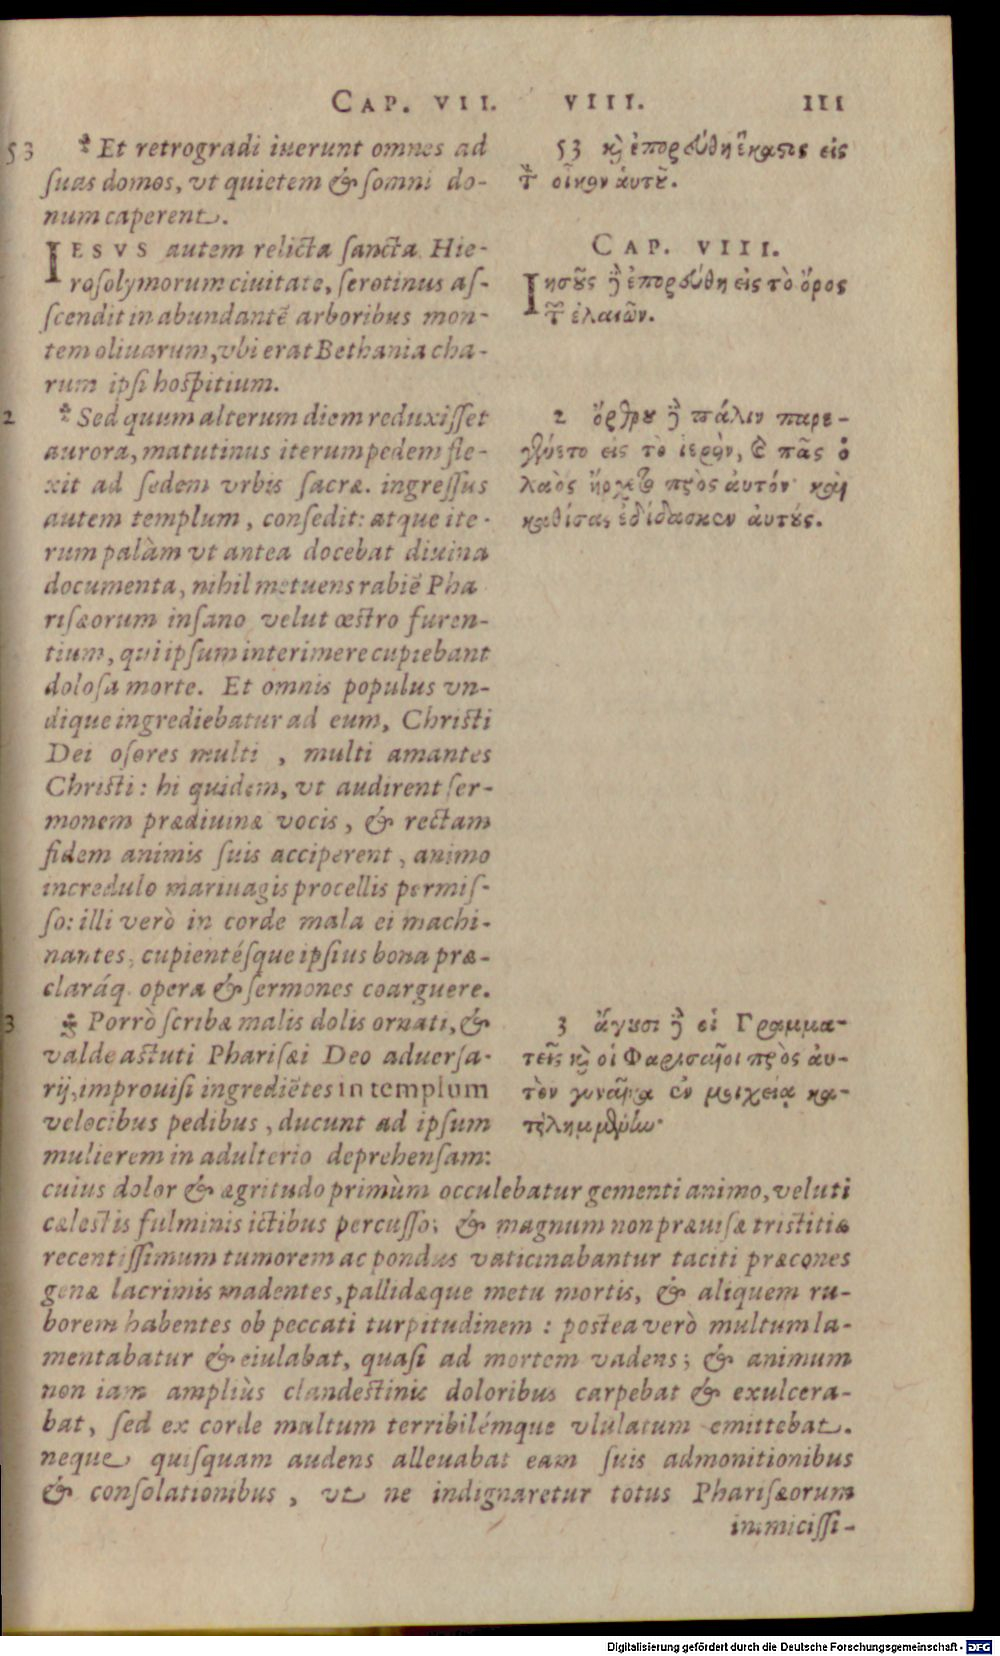 CAP. VII. VIII. III
53 * Et retrogradi iuerunt omnes ad
suas domos, vt quietem & somni do-
num caperent.
IESVS autem relicta sancta Hie-
rosolymorum ciuitate, serotinus as-
scendit in abundantē arboribus mon-
tem oliuarum, vbi erat Bethania cha-
rum ipsi hospitium.
2 * Sed quum alterum diem reduxisset
aurora, matutinus iterum pedem fle-
xit ad sedem vrbis sacræ. ingressus
autem templum, consedit: atque ite-
rum palàm vt antea docebat diuina
documenta, nihil metuens rabiē Pha
risæorum insano velut œstro furen-
tium, qui ipsum interimere cupiebant
dolosa morte. Et omnis populus vn-
dique ingrediebatur ad eum, Christi
Dei osores multi, multi amantes
Christi: hi quidem, vt audirent ser-
monem prædiuinæ vocis, & rectam
fidem animis suis acciperent, animo
incredulo mariuagis procellis permis-
so: illi verò in corde mala ei machi-
nantes, cupientésque ipsius bona præ-
claráq. opera & sermones coarguere.
3 * Porrò scribæ malis dolis ornati, &
valde astuti Pharisæi Deo aduersa-
rij, improuisi ingrediētes in templum
velocibus pedibus, ducunt ad ipsum
mulierem in adulterio deprehensam:
53 καὶ ἐπορεύθη ἕκαστος εἰς
τὸν οἶκον αὑτοῦ.
CAP. VIII.
Ιησοῦς δὲ ἐπορεύθη εἰς τὸ ὄρος
τῶν ἐλαιῶν.
2 ὄρθρου δὲ πάλιν παρε-
γένετο εἰς τὸ ἱερὸν, καὶ πᾶς ὁ
λαὸς ἤρχετο πρὸς αὐτόν· καὶ
καθίσας ἐδίδασκεν αὐτούς.
3 ἄγουσι δὲ οἱ Γραμμα-
τεῖς καὶ οἱ Φαρισαῖοι πρὸς αὐ-
τὸν γυναῖκα ἐν μοιχείᾳ κα-
τειλημμένην·
cuius dolor & ægritudo primùm occulebatur gementi animo, veluti
cælestis fulminis ictibus percusso; & magnum non præuisæ tristitiæ
recentissimum tumorem ac pondus vaticinabantur taciti præcones
genæ lacrimis madentes, pallidæque metu mortis, & aliquem ru-
borem habentes ob peccati turpitudinem: postea verò multum la-
mentabatur & eiulabat, quasi ad mortem vadens; & animum
non iam ampliùs clandestinis doloribus carpebat & exulcera-
bat, sed ex corde multum terribilémque vlulatum emittebat.
neque quisquam audens alleuabat eam suis admonitionibus
& consolationibus, vt ne indignaretur totus Pharisæorum
inimicissi-
Digitalisierung gefördert durch die Deutsche Forschungsgemeinschaft - DFG